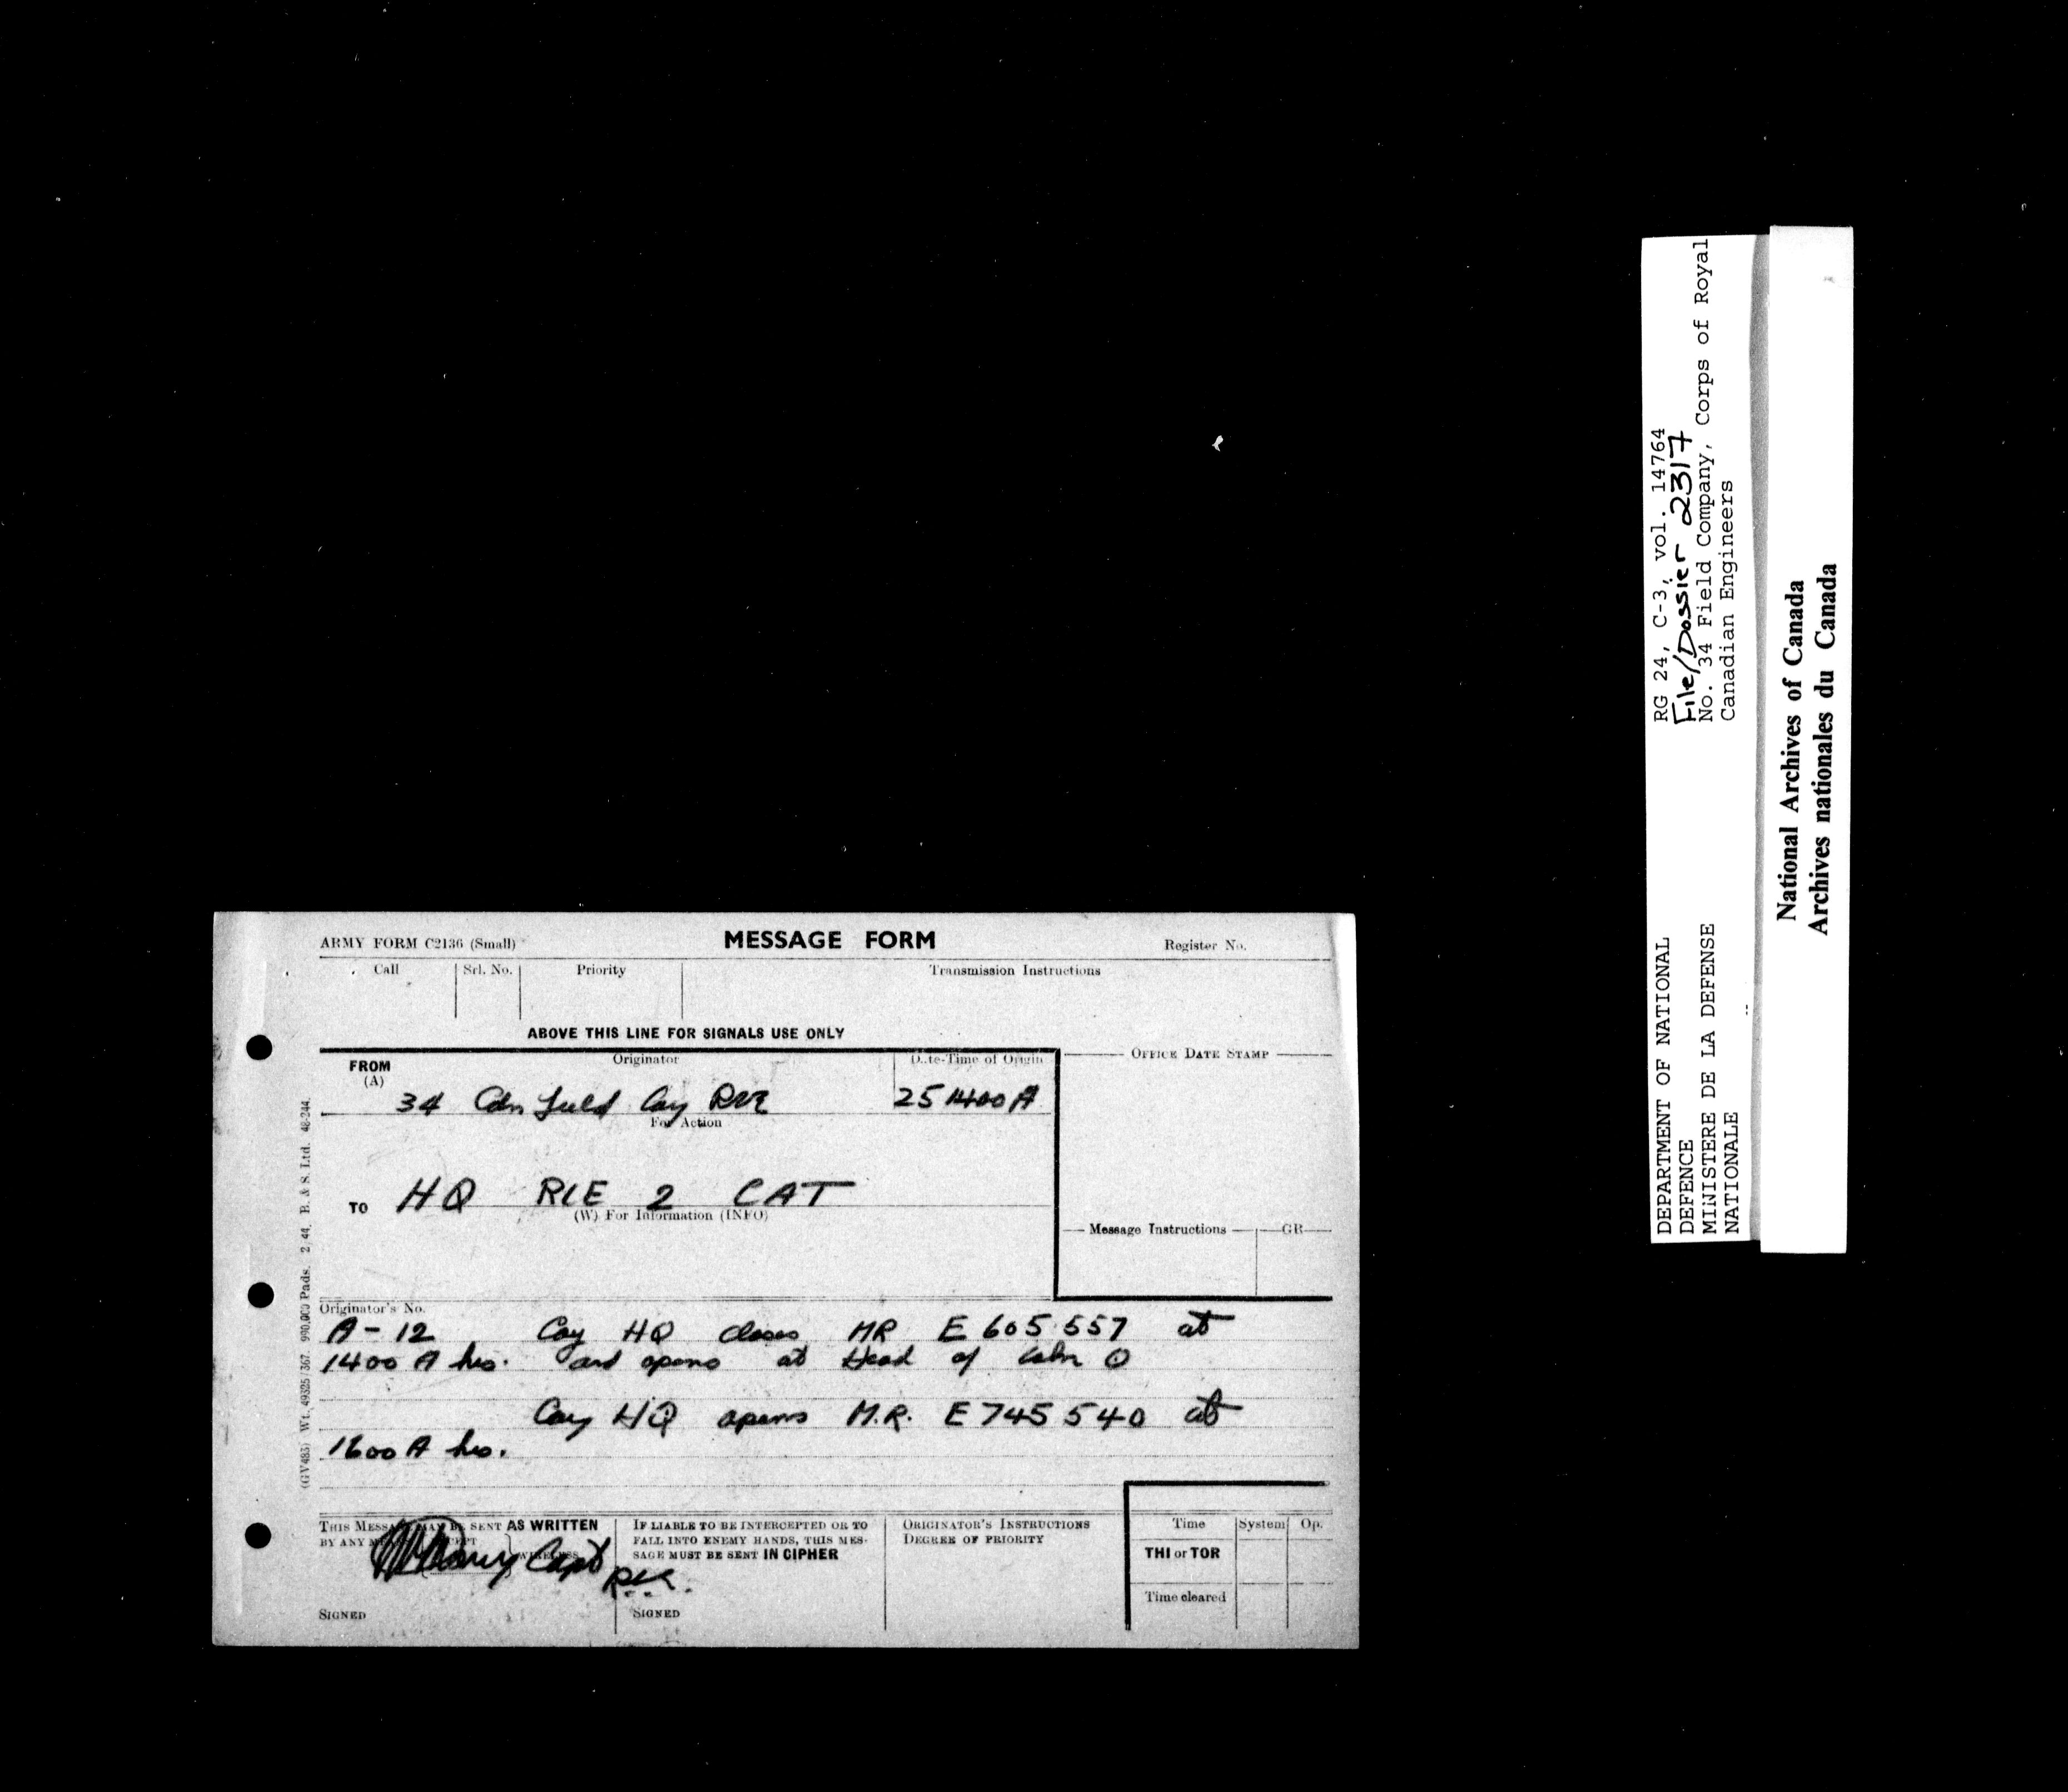 ARMY FORM C2136 (Small)
MESSAGE FORM
Register No.
Call
Srl. No.
Priority
Transmission Instructions
ABOVE THIS LINE FOR SIGNALS USE ONLY
FROM
(A)
Originator
Date-Time of Origin
34 Cdn Field Coy RCE
251400 A
For Action
TO
HQ RCE 2 CAT
(W) For Information (INFO)
OFFICE DATE STAMP
Message Instructions
GR
Originator's No.
A-12 Coy HQ closes MR E 605557 at
1400 A hrs. and opens at Head of Colm O
Coy HQ opens M.R. E 745540 at
1600 A hrs.
THIS MESSAGE MAY BE SENT AS WRITTEN
BY ANY
WIRELESS
Capt
RCE.
SIGNED
IF LIABLE TO BE INTERCEPTED OR TO
FALL INTO ENEMY HANDS, THIS MES-
SAGE MUST BE SENT IN CIPHER
SIGNED
ORIGINATOR'S INSTRUCTIONS
DEGREE OF PRIORITY
Time
System
Op.
THI or TOR
Time cleared
(GV485) Wt. 49325/367. 990,000 Pads. 2/44. B. & S. Ltd. 48-244.
DEPARTMENT OF NATIONAL
DEFENCE
MINISTERE DE LA DEFENSE
NATIONALE
RG 24, C-3, vol. 14764
File/Dossier 2317
No. 34 Field Company, Corps of Royal
Canadian Engineers
National Archives of Canada
Archives nationales du Canada